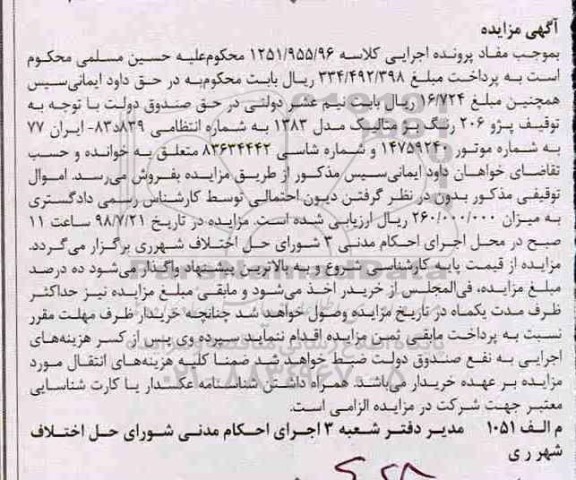 آگهی مزایده
بموجب مفاد پرونده اجرایی کلاسه ۱۲۵۱/۹۵۵/۹۶ محکوم‌علیه حسین مسلمی محکوم
است به پرداخت مبلغ ۳۳۴/۴۹۲/۳۹۸ ریال بابت محکوم‌به در حق داود ایمانی‌سیس
همچنین مبلغ ۱۶/۷۲۴ ریال بابت نیم عشر دولتی در حق صندوق دولت با توجه به
توقیف پژو ۲۰۶ رنگ بژ متالیک مدل ۱۳۸۳ به شماره انتظامی ۸۳۹د۸۳- ایران ۷۷
به شماره موتور ۱۴۷۵۹۲۴۰ و شماره شاسی ۸۳۶۳۴۴۴۲ متعلق به خوانده و حسب
تقاضای خواهان داود ایمانی‌سیس مذکور از طریق مزایده بفروش می‌رسد. اموال
توقیفی مذکور بدون در نظر گرفتن دیون احتمالی توسط کارشناس رسمی دادگستری
به میزان ۲۶۰/۰۰۰/۰۰۰ ریال ارزیابی شده است. مزایده در تاریخ ۹۸/۷/۲۱ ساعت ۱۱
صبح در محل اجرای احکام مدنی ۳ شورای حل اختلاف شهرری برگزار می‌گردد.
مزایده از قیمت پایه کارشناسی شروع و به بالاترین پیشنهاد واگذار می‌شود ده درصد
مبلغ مزایده، فی‌المجلس از خریدر اخذ می‌شود و مابقی مبلغ مزایده نیز حداکثر
ظرف مدت یکماه در تاریخ مزایده وصول خواهد شد چنانچه خریدار ظرف مهلت مقرر
نسبت به پرداخت مابقی ثمن مزایده اقدام ننماید سپرده وی پس از کسر هزینه‌های
اجرایی به نفع صندوق دولت ضبط خواهد شد ضمنا کلیه هزینه‌های انتقال مورد
مزایده بر عهده خریدار می‌باشد. همراه داشتن شناسنامه عکسدار یا کارت شناسایی
معتبر جهت شرکت در مزایده الزامی است.
م الف ۱۰۵۱ مدیر دفتر شعبه ۳ اجرای احکام مدنی شورای حل اختلاف
شهر ری